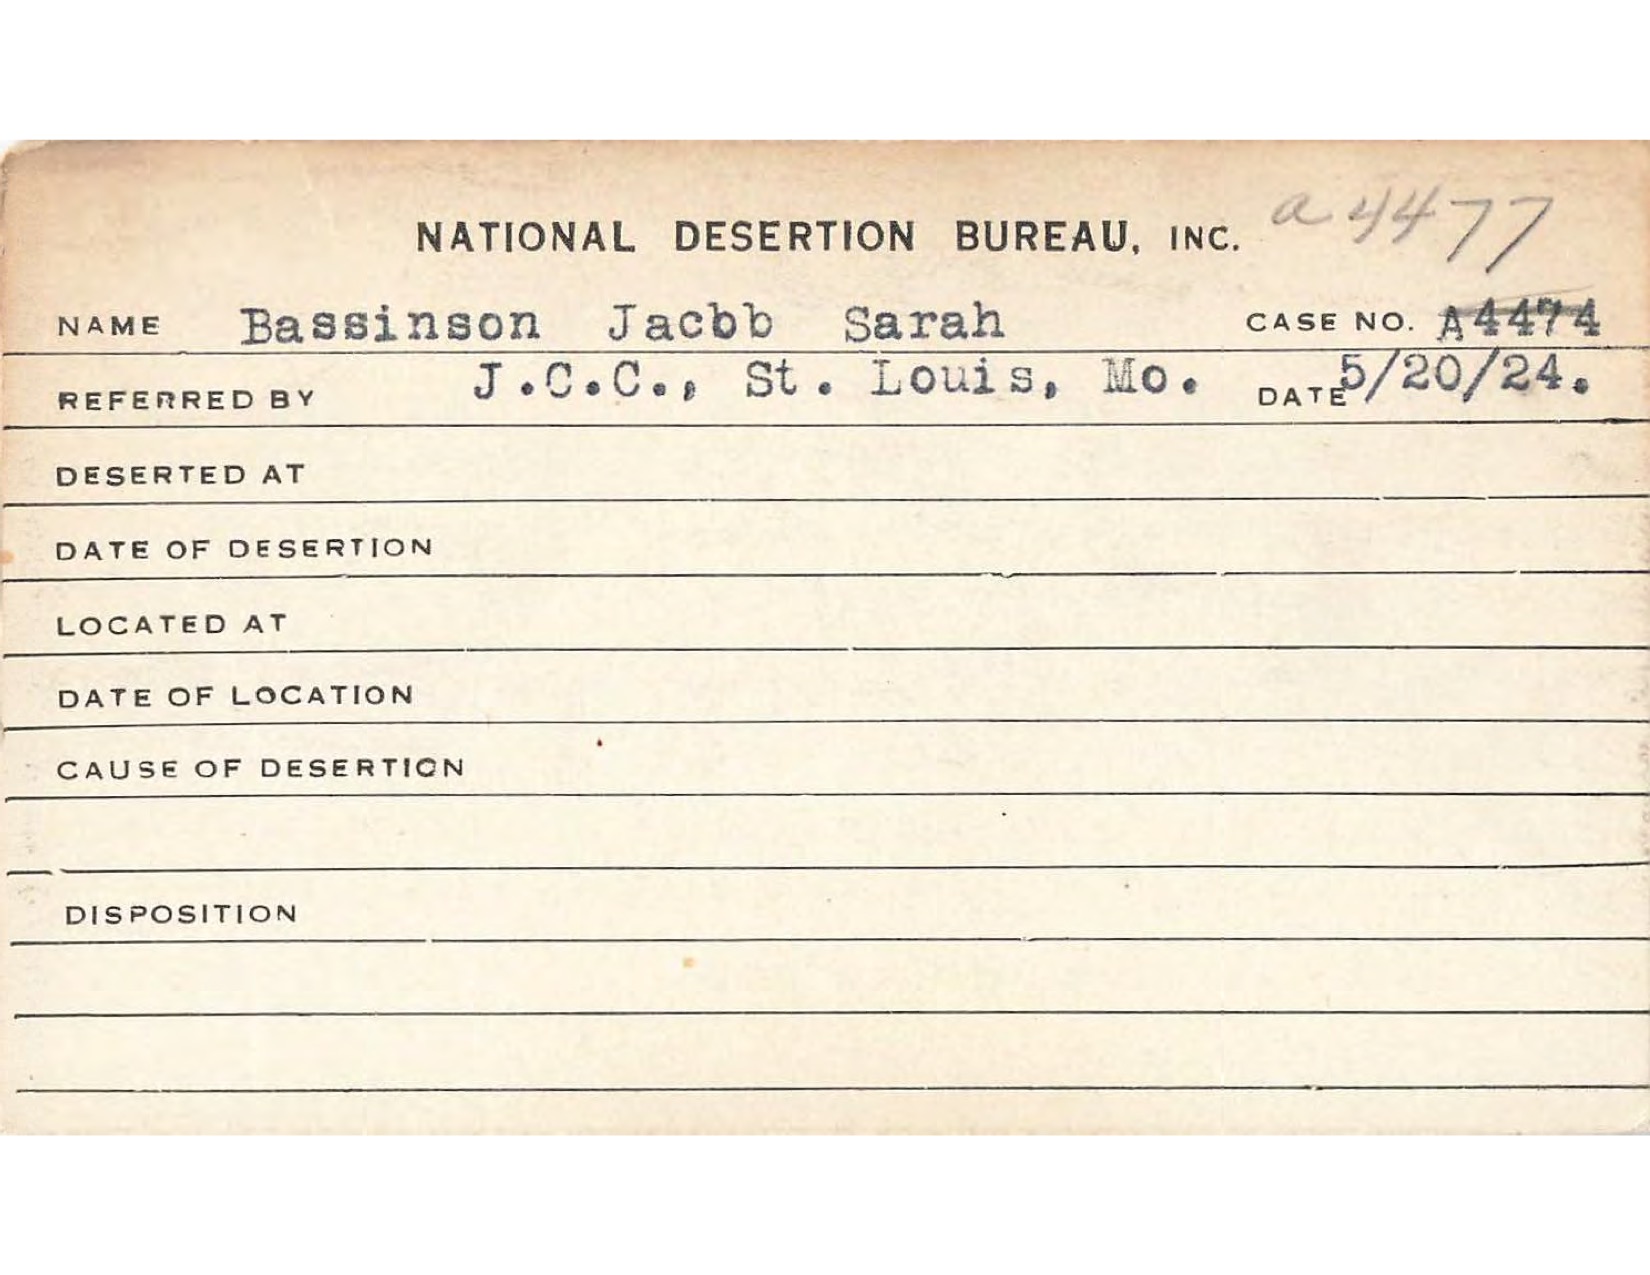 a4477
NATIONAL DESERTION BUREAU, INC.
NAME Bassinson Jacbb Sarah CASE NO. A4474
REFERRED BY J.C.C., St. Louis, Mo. DATE 5/20/24.
DESERTED AT
DATE OF DESERTION
LOCATED AT
DATE OF LOCATION
CAUSE OF DESERTION
DISPOSITION